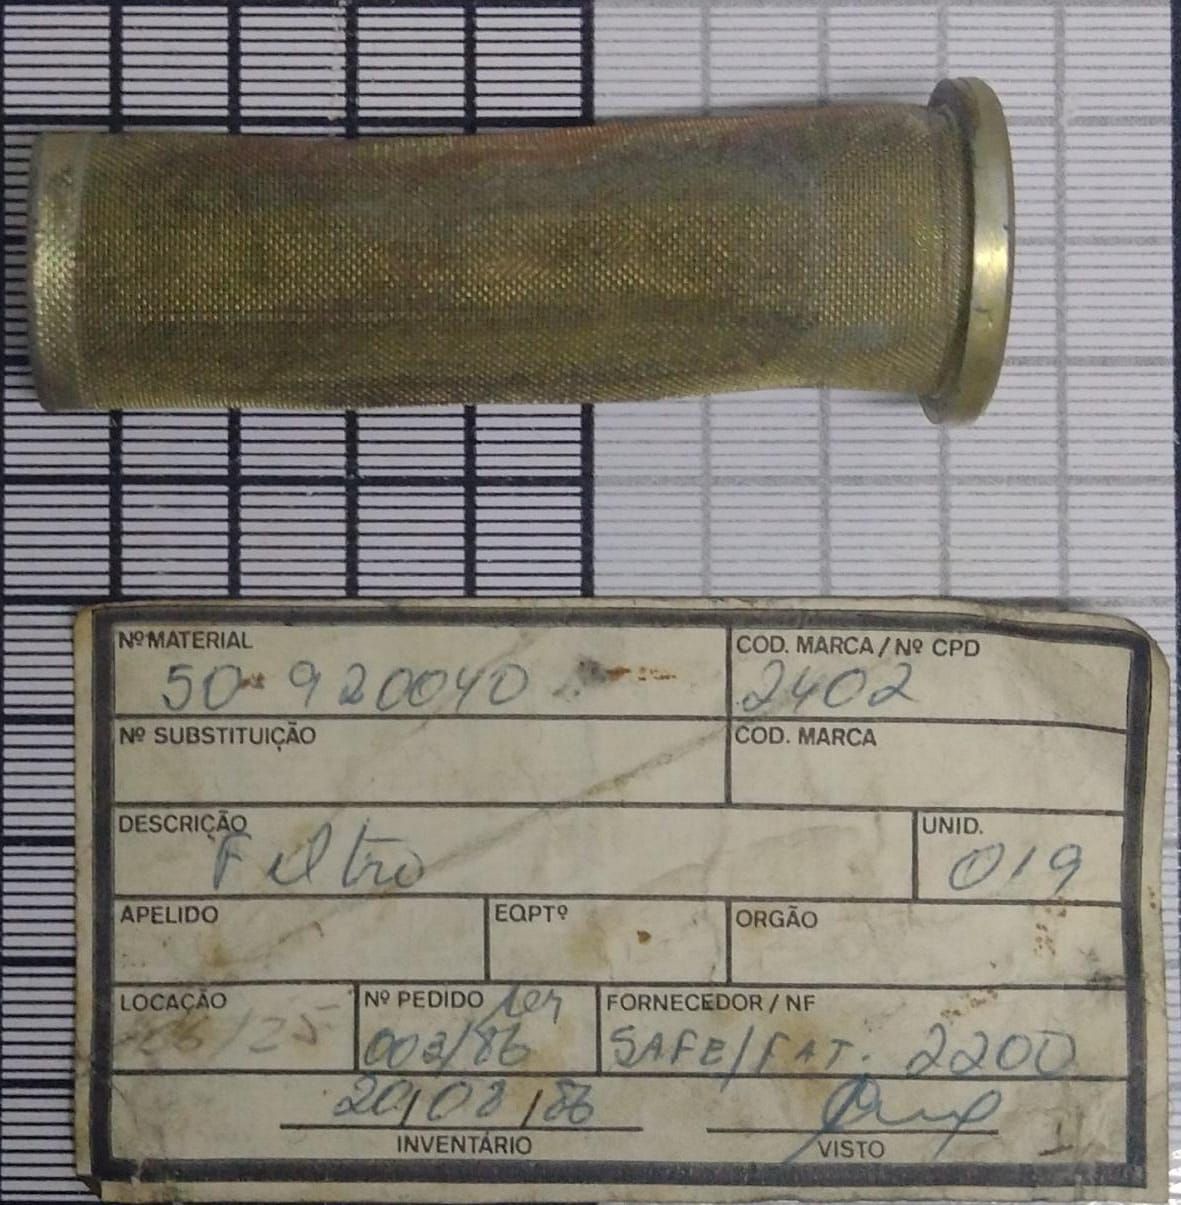 Nº MATERIAL
50-920040
COD. MARCA / Nº CPD
2402
Nº SUBSTITUIÇÃO
COD. MARCA
DESCRIÇÃO
Filtro
UNID.
019
APELIDO
EQPTº
ORGÃO
LOCAÇÃO
Nº PEDIDO
003/86
FORNECEDOR / NF
SAFE/FAT. 2200
20/08/86
INVENTÁRIO
VISTO